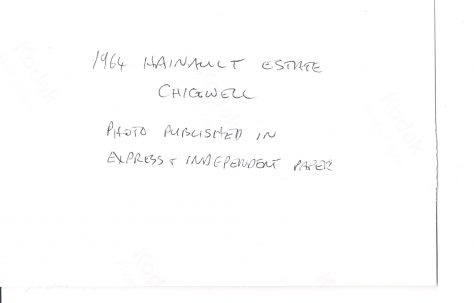 1964 HAINAULT ESTATE
CHIGWELL
PHOTO PUBLISHED IN
EXPRESS & INDEPENDENT PAPER
Kodak
Kodak
Kodak
Kodak